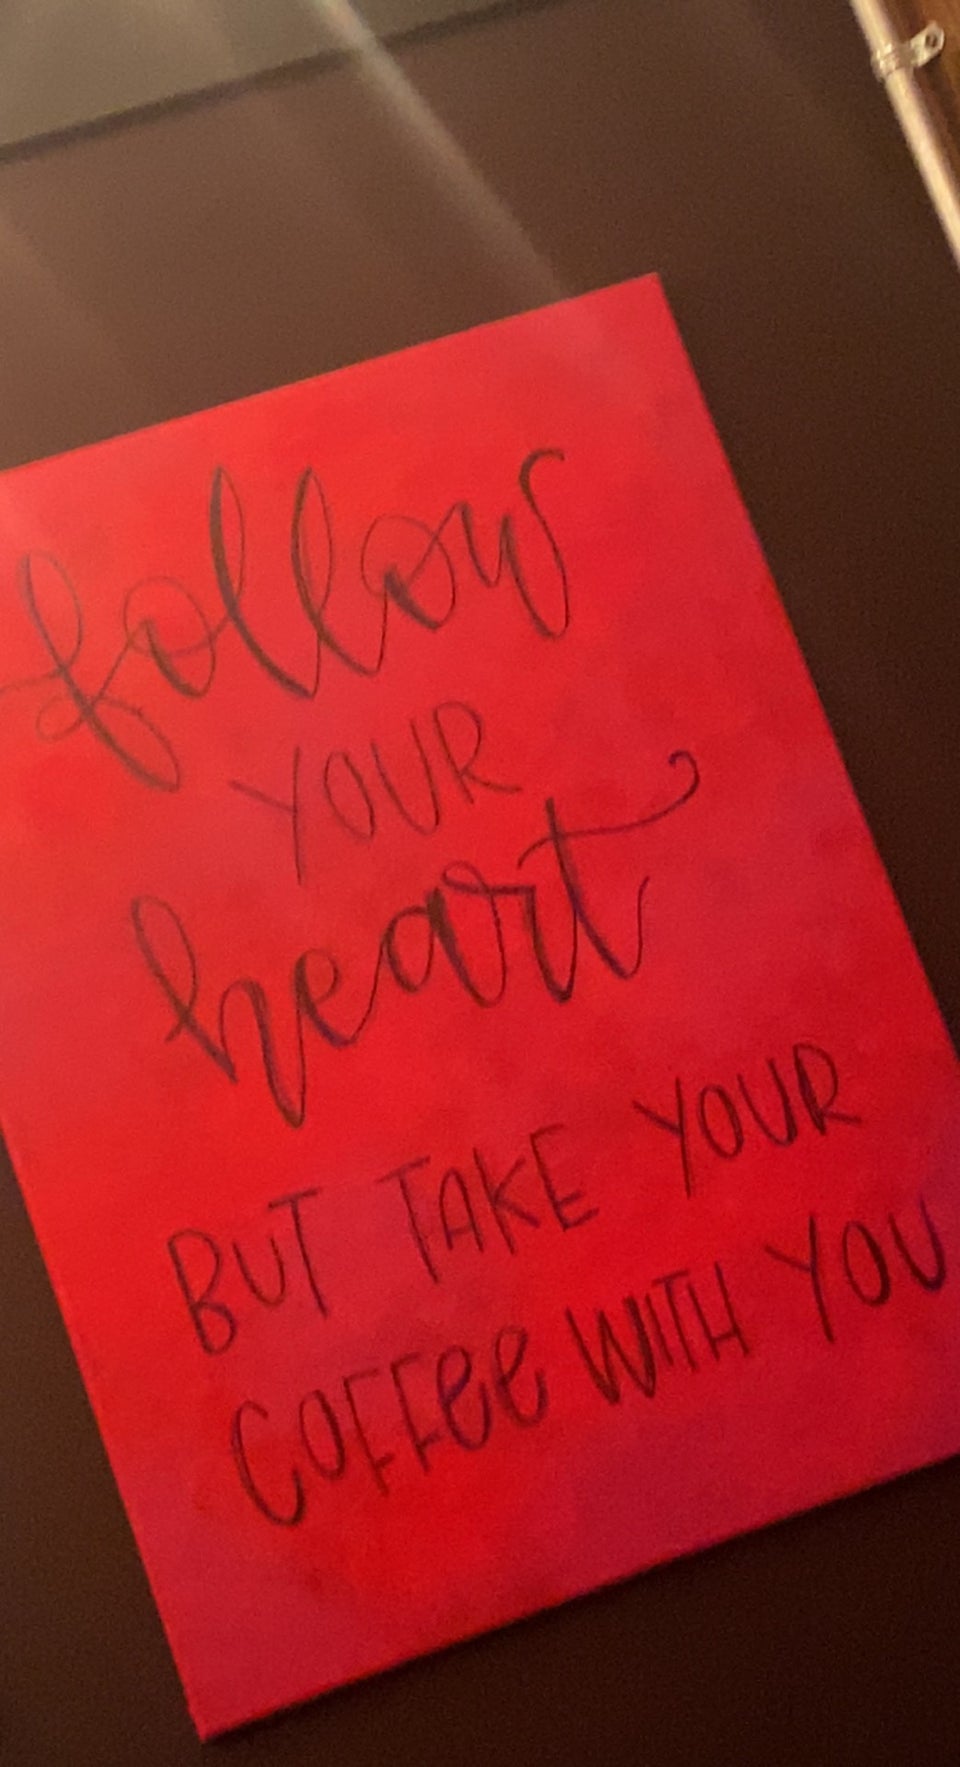 follow
YOUR
heart
BUT TAKE YOUR
COFFee WITH YOU